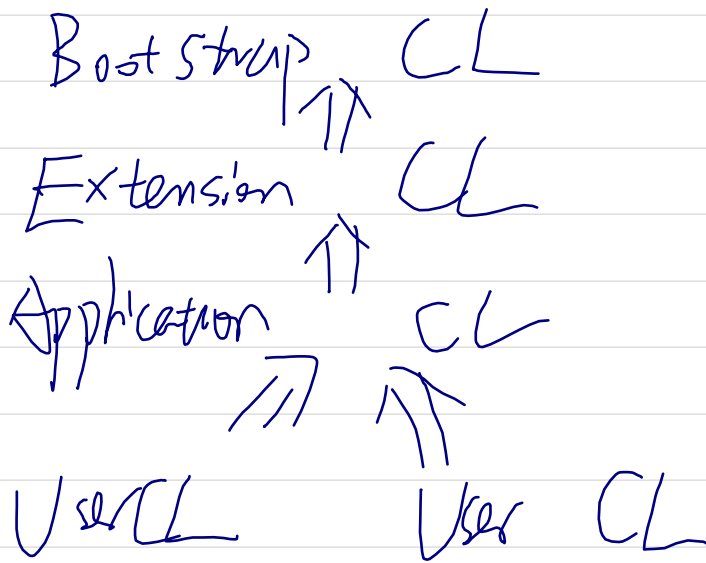 Bootstrap CL
Extension CL
Application CL
UserCL User CL